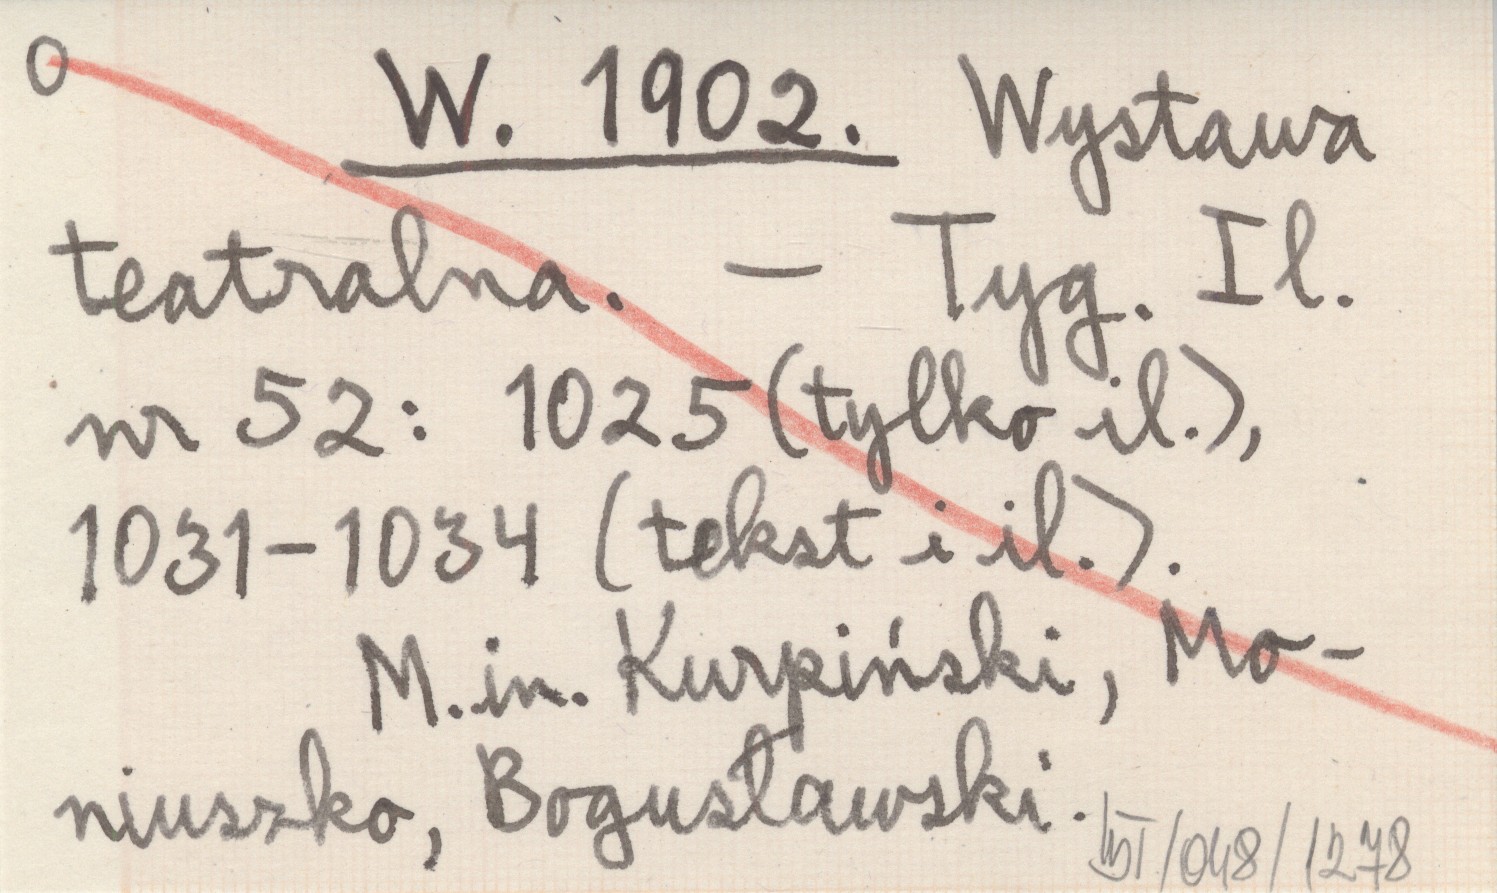 O W. 1902. Wystawa
teatralna. — Tyg. Il.
nr 52: 1025 (tylko il.),
1031-1034 (tekst i il.).
M.in. Kurpiński, Mo-
niuszko, Bogusławski.
/048/1278